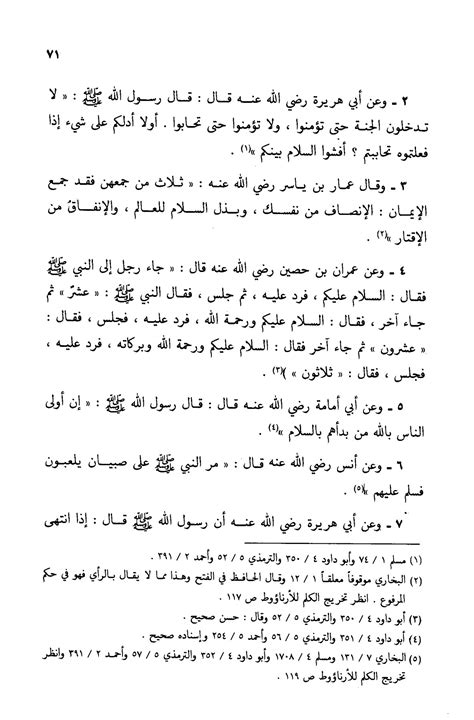 ٧١
٢ ـ وعن أبي هريرة رضي الله عنـه قـال : قـال رسـول الله ﷺ : « لا
تـدخلون الجنـة حتى تؤمنوا ، ولا تؤمنوا حتى تحـابوا . أولا أدلكم على شيء إذا
فعلتوه تحاببتم ؟ أفشوا السلام بينكم »(١) .
٣ ـ وقـال عمار بن يـاسر رضي الله عنـه : « ثـلاث من جمعهن فقـد جمـع
الإيمـان : الإنصـاف من نفسـك ، وبـذل السـلام للعـالم ، والإنفـاق من
الإقتار »(٢) .
٤ ـ وعن عمران بن حصين رضي الله عنه قال : « جاء رجل إلى النبي ﷺ
فقـال : السلام عليكم ، فرد عليـه ، ثم جلس ، فقـال النبي ﷺ : « عشر » ثم
جاء آخر ، فقال : السلام عليكم ورحمة الله ، فرد عليـه ، فجلس ، فقـال :
« عشرون » ثم جاء آخر فقال : السلام عليكم ورحمة الله وبركاته ، فرد عليـه ،
فجلس ، فقال : « ثلاثون » )(٣) .
٥ ـ وعن أبي أمامة رضي الله عنه قـال : قـال رسول الله ﷺ : « إن أولى
الناس بالله من بدأهم بالسلام »(٤) .
٦ ـ وعن أنس رضي الله عنه قال : « مر النبي ﷺ على صبيـان يلعبون
فسلم عليهم »(٥) .
٧ ـ وعن أبي هريرة رضي الله عنـه أن رسول الله ﷺ قـال : إذا انتهى
(١) مسلم ١ / ٧٤ وأبو داود ٤ / ٣٥٠ والترمذي ٥ / ٥٢ وأحمد ٢ / ٣٩١ .
(٢) البخاري موقوفاً معلقاً ١ / ١٢ وقال الحافظ في الفتح وهذا مما لا يقال بالرأي فهو في حكم
المرفوع . انظر تخريج الكلم للأرناؤوط ص ١١٧ .
(٣) أبو داود ٤ / ٣٥٠ والترمذي ٥ / ٥٢ وقال : حسن صحيح .
(٤) أبو داود ٤ / ٣٥١ والترمذي ٥ / ٥٦ وأحمد ٥ / ٢٥٤ وإسناده صحيح .
(٥) البخاري ٧ / ١٣١ ومسلم ٤ / ١٧٠٨ وأبو داود ٤ / ٣٥٢ والترمذي ٥ / ٥٧ وأحمـد ٢ / ٣٩١ وانظر
تخريج الكلم للأرناؤوط ص ١١٩ .